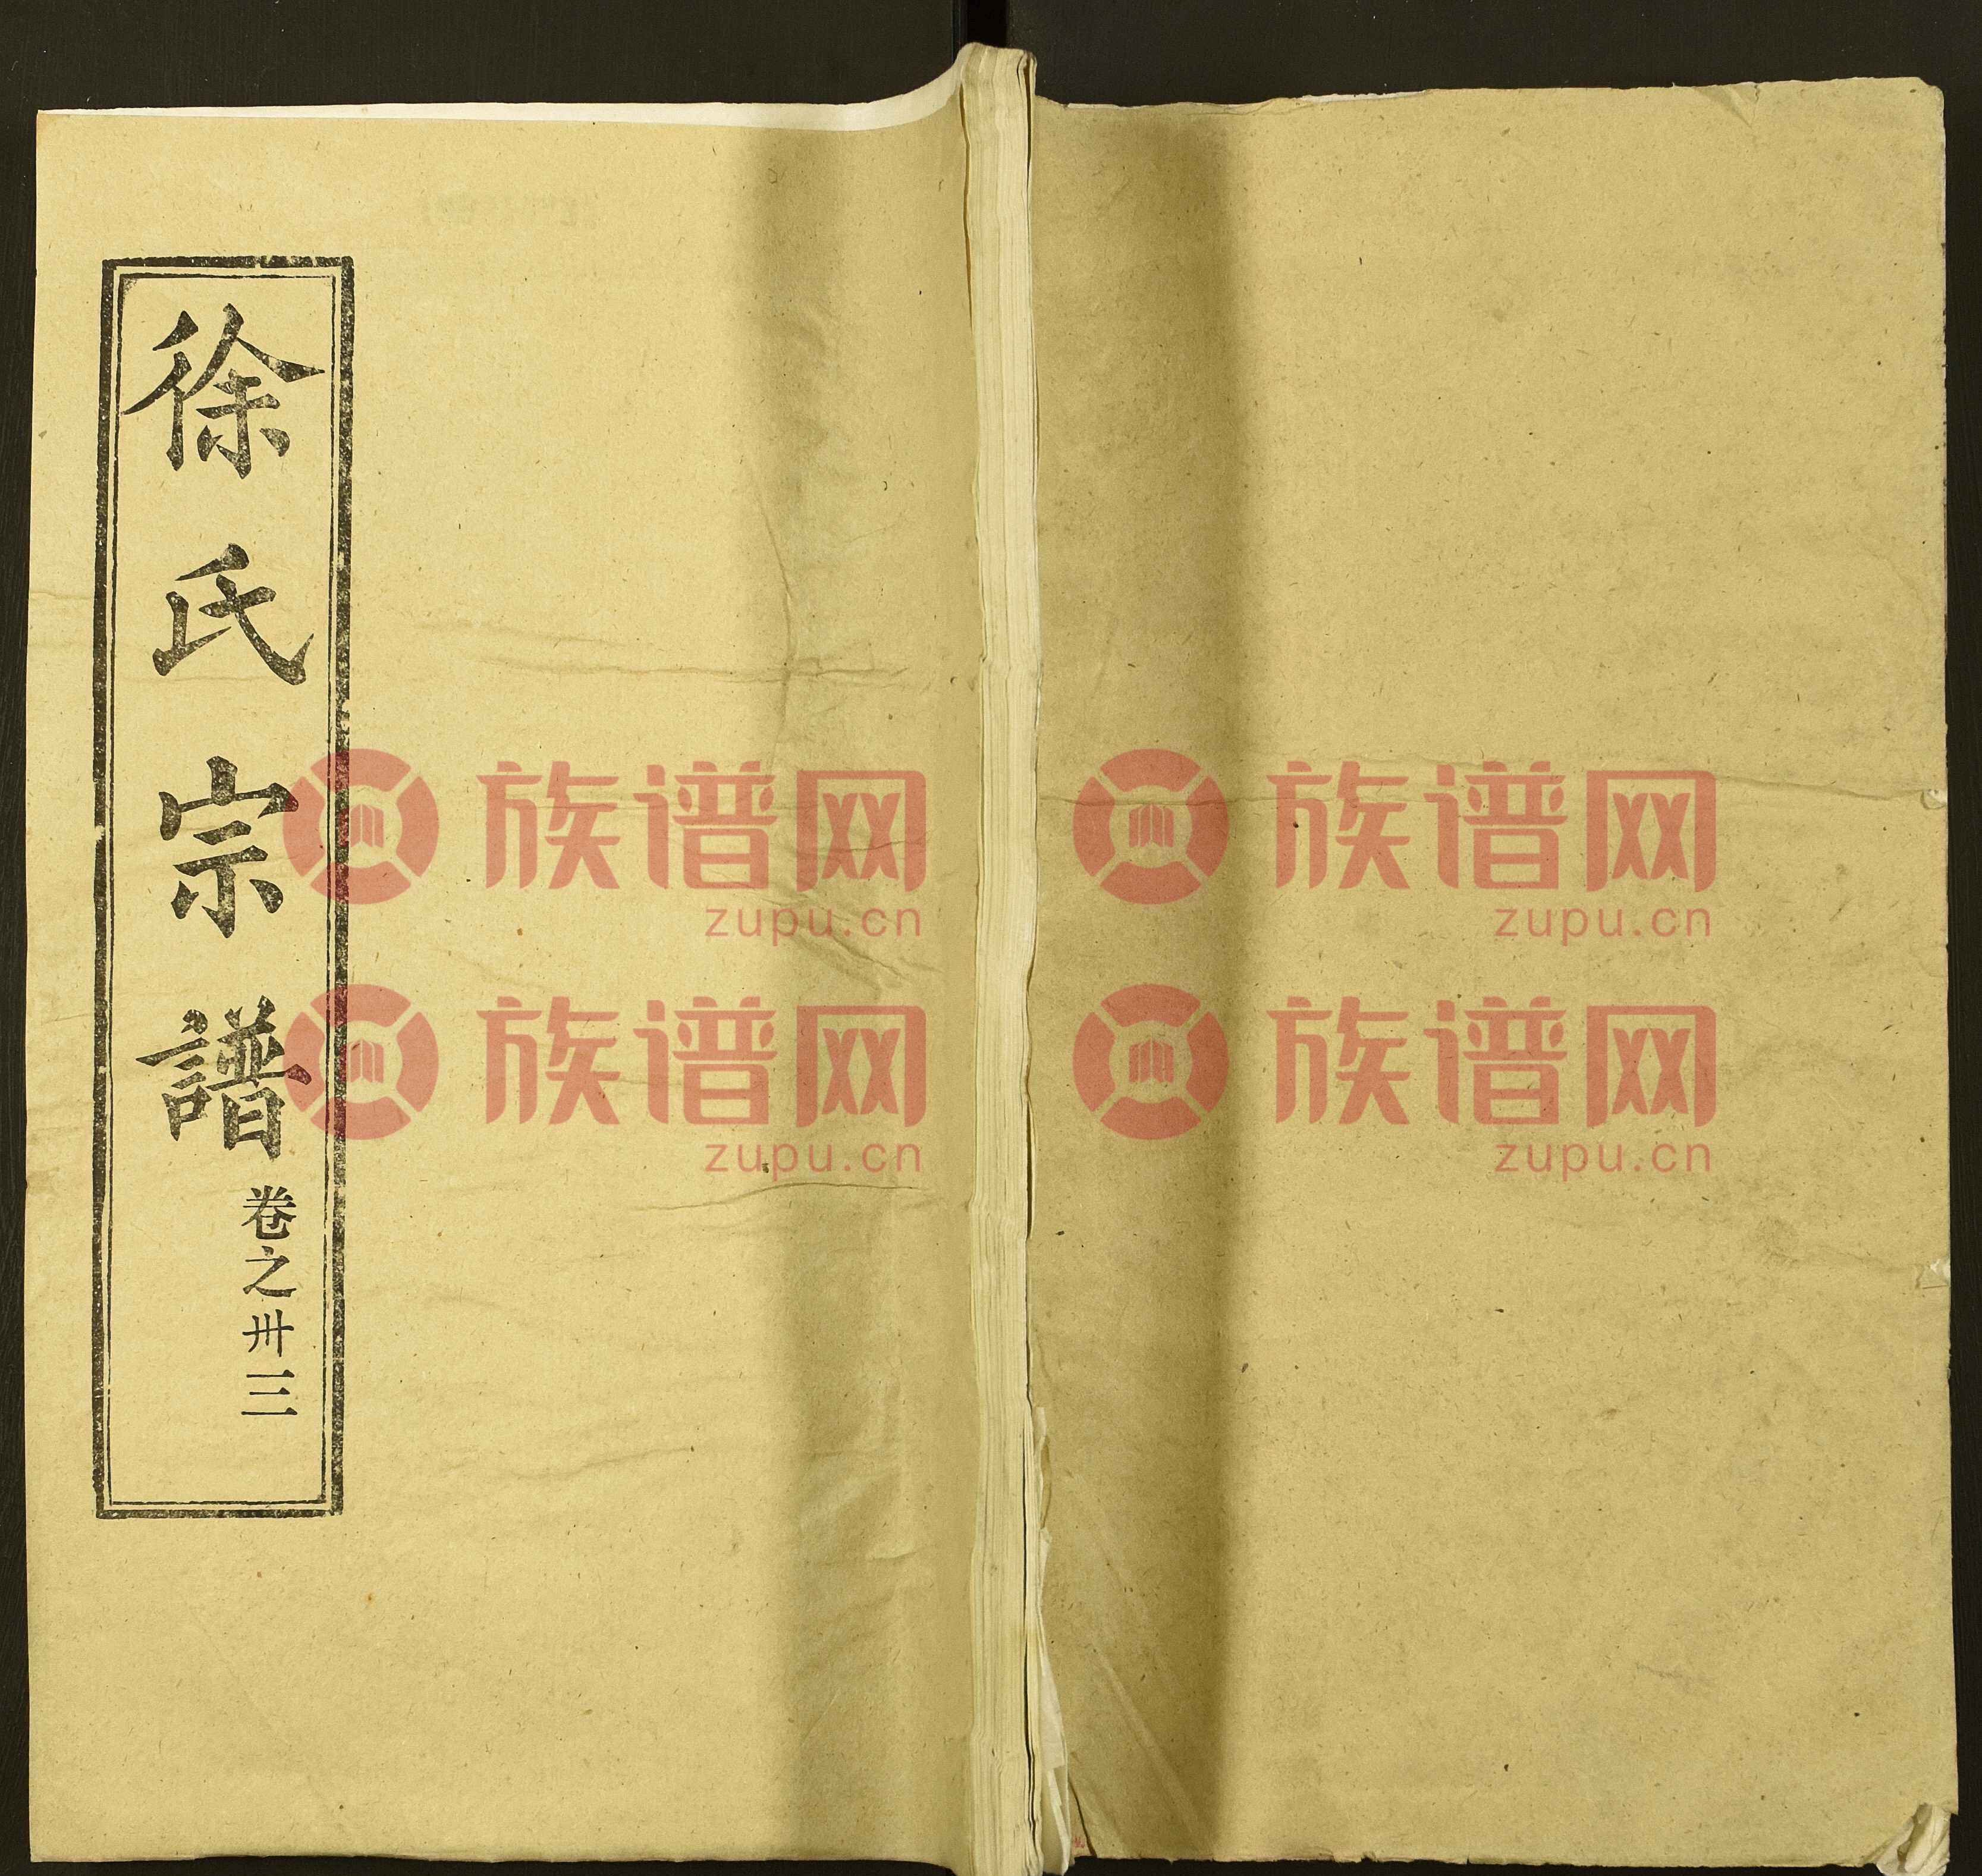 徐氏宗譜
卷之卅三
族谱网
zupu.cn
族谱网
zupu.cn
族谱网
zupu.cn
族谱网
zupu.cn